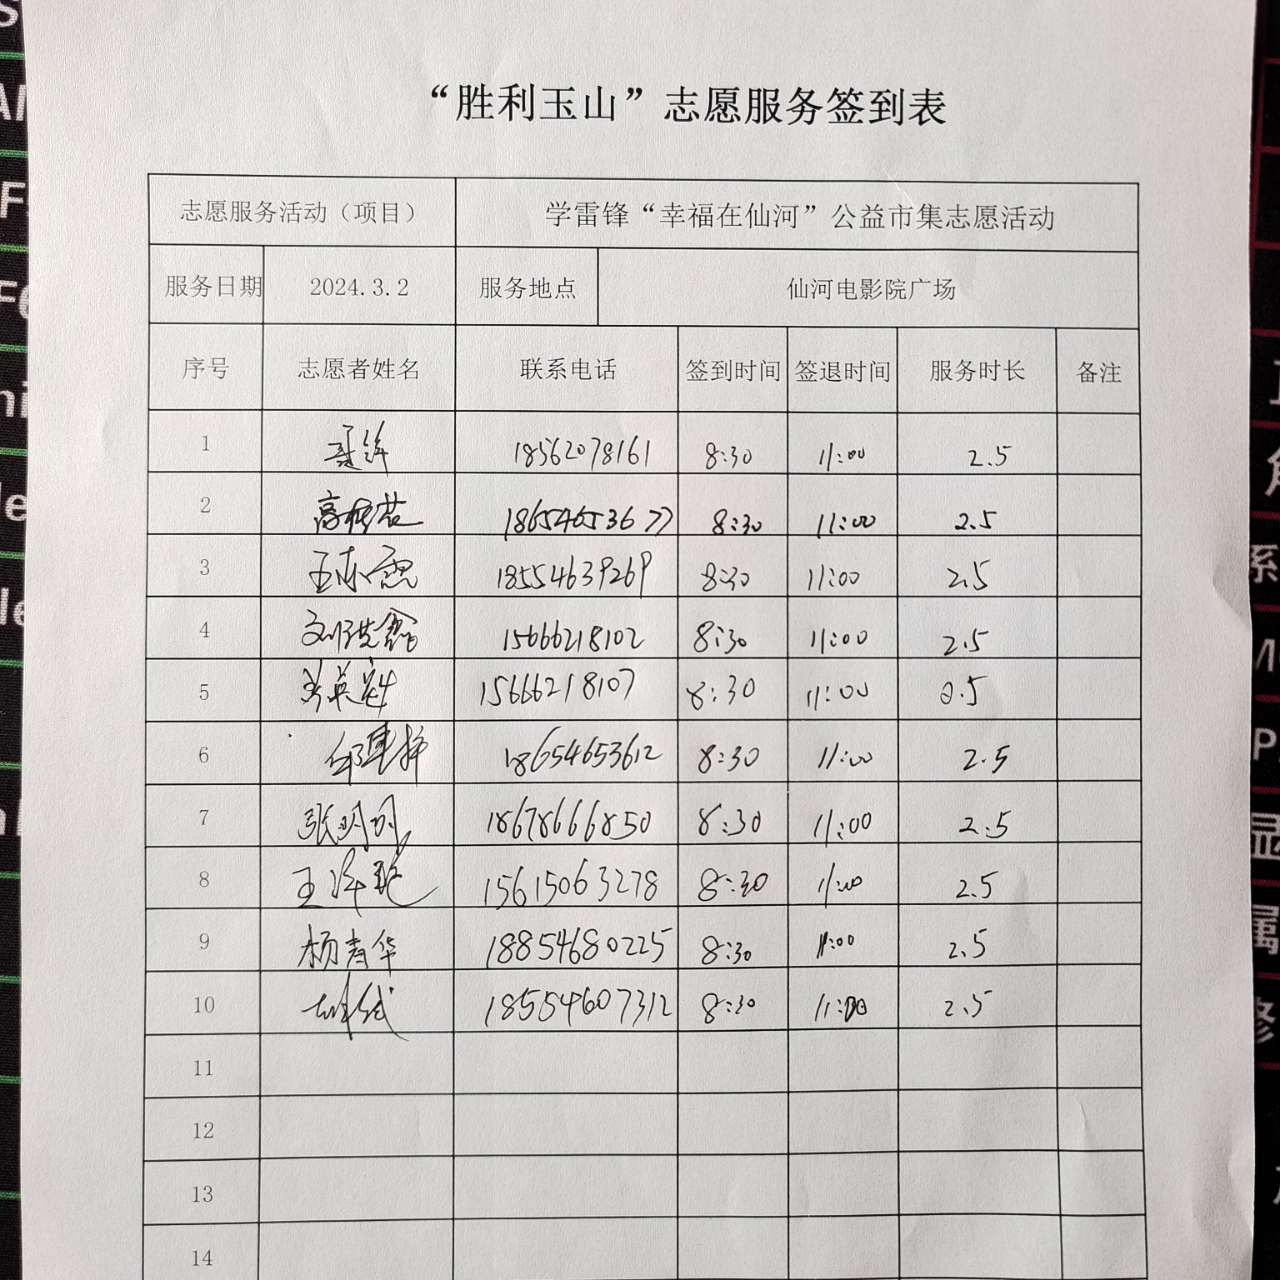 “胜利玉山”志愿服务签到表
志愿服务活动（项目） 学雷锋“幸福在仙河”公益市集志愿活动
服务日期 2024.3.2 服务地点 仙河电影院广场
序号 志愿者姓名 联系电话 签到时间 签退时间 服务时长 备注
1 18562078161 8:30 11:00 2.5
2 18654653677 8:30 11:00 2.5
3 18554639269 8:30 11:00 2.5
4 15666218102 8:30 11:00 2.5
5 15666218107 8:30 11:00 2.5
6 18654653612 8:30 11:00 2.5
7 18678666850 8:30 11:00 2.5
8 15615063278 8:30 11:00 2.5
9 杨青华 18854680225 8:30 11:00 2.5
10 18554607312 8:30 11:00 2.5
11
12
13
14